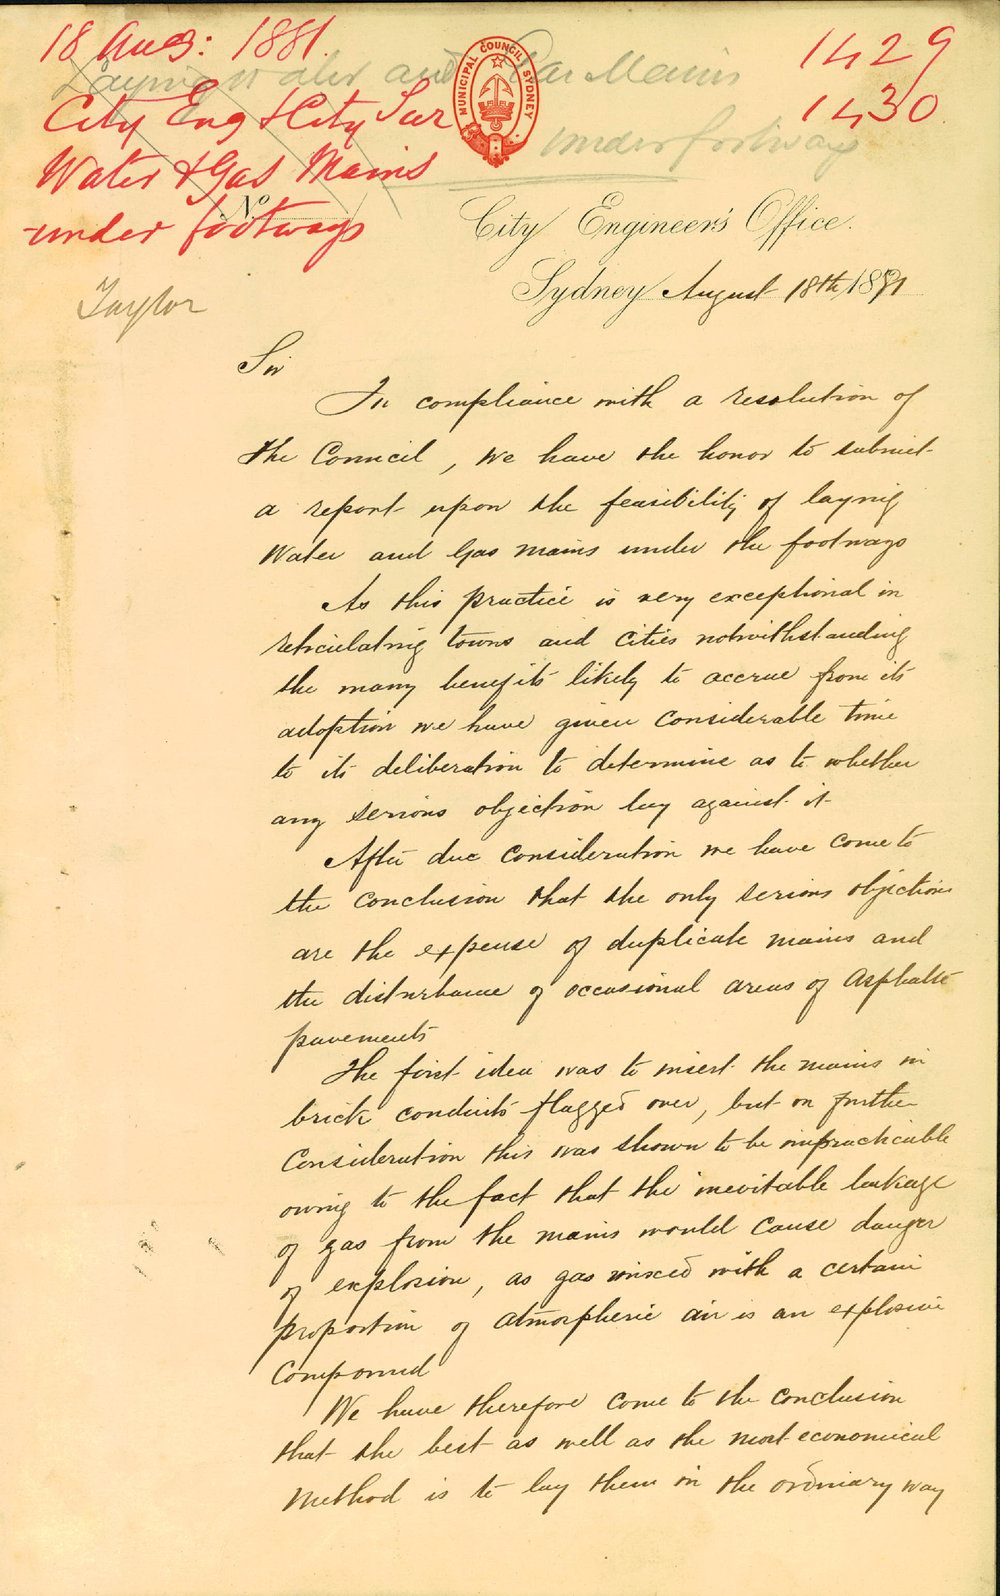 18 Aug: 1881.
Laying Water and Gas Mains
under footways
1429
1430
City Eng & City Sur
Water & Gas Mains
under footways
MUNICIPAL COUNCIL SYDNEY
No
City Engineer's Office.
Sydney August 18th 1881
Taylor
Sir
In compliance with a resolution of
the Council, we have the honor to submit
a report upon the feasibility of laying
Water and Gas mains under the footways
As this practice is very exceptional in
reticulating towns and cities notwithstanding
the many benefits likely to accrue from its
adoption we have given considerable time
to its deliberation to determine as to whether
any serious objection lay against it
After due consideration we have come to
the conclusion that the only serious objections
are the expense of duplicate mains and
the disturbance of occasional areas of Asphalte
pavements
The first idea was to insert the mains in
brick conduits flagged over, but on further
consideration this was shown to be impracticable
owing to the fact that the inevitable leakage
of gas from the mains would cause danger
of explosion, as gas mixed with a certain
proportion of atmospheric air is an explosive
compound
We have therefore come to the conclusion
that the best as well as the most economical
method is to lay them in the ordinary way